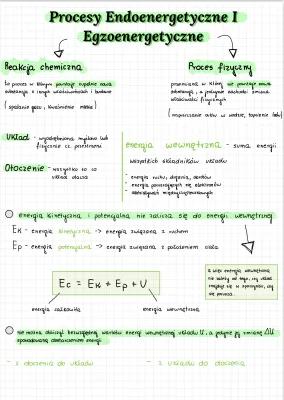 Procesy Endoenergetyczne I
Egzoenergetyczne
Reakcja chemiczna
Proces fizyczny
to proces w którym powstaje zupełnie nowa
substancja o innych właściwościach i budowie
( spalanie gazu, kwaśnienie mleka )
przemiana w której nie powstaje nowa
substancja, a jedynie zachodzi zmiana
właściwości fizycznych
( rozpuszczanie cukru w wodzie, topnienie lodu )
Układ - wyodrębniona myślowo lub
fizycznie cz. przestrzeni
Otoczenie - wszystko to co
układ otacza
energia wewnętrzna - suma energii
wszystkich składników układu
- energia ruchu, drgania, obrotów
- energia poruszających się elektronów
- oddziaływań międzycząsteczkowych
energia kinetyczna i potencjalna nie zalicza się do energii wewnętrznej
Ek - energia kinetyczna -> energia związana z ruchem
Ep - energia potencjalna -> energia związana z położeniem ciała
Ec = Ek + Ep + U
energia całkowita
energia wewnętrzna
a więc energia wewnętrzna
nie zależy od tego, czy układ
znajduje się w spoczynku, czy
się porusza.
nie można obliczyć bezwzględnej wartości energii wewnętrznej układu U, a jedynie jej zmianę ΔU
spowodowaną dostarczeniem energii
- z otoczenia do układu
- z układu do otoczenia